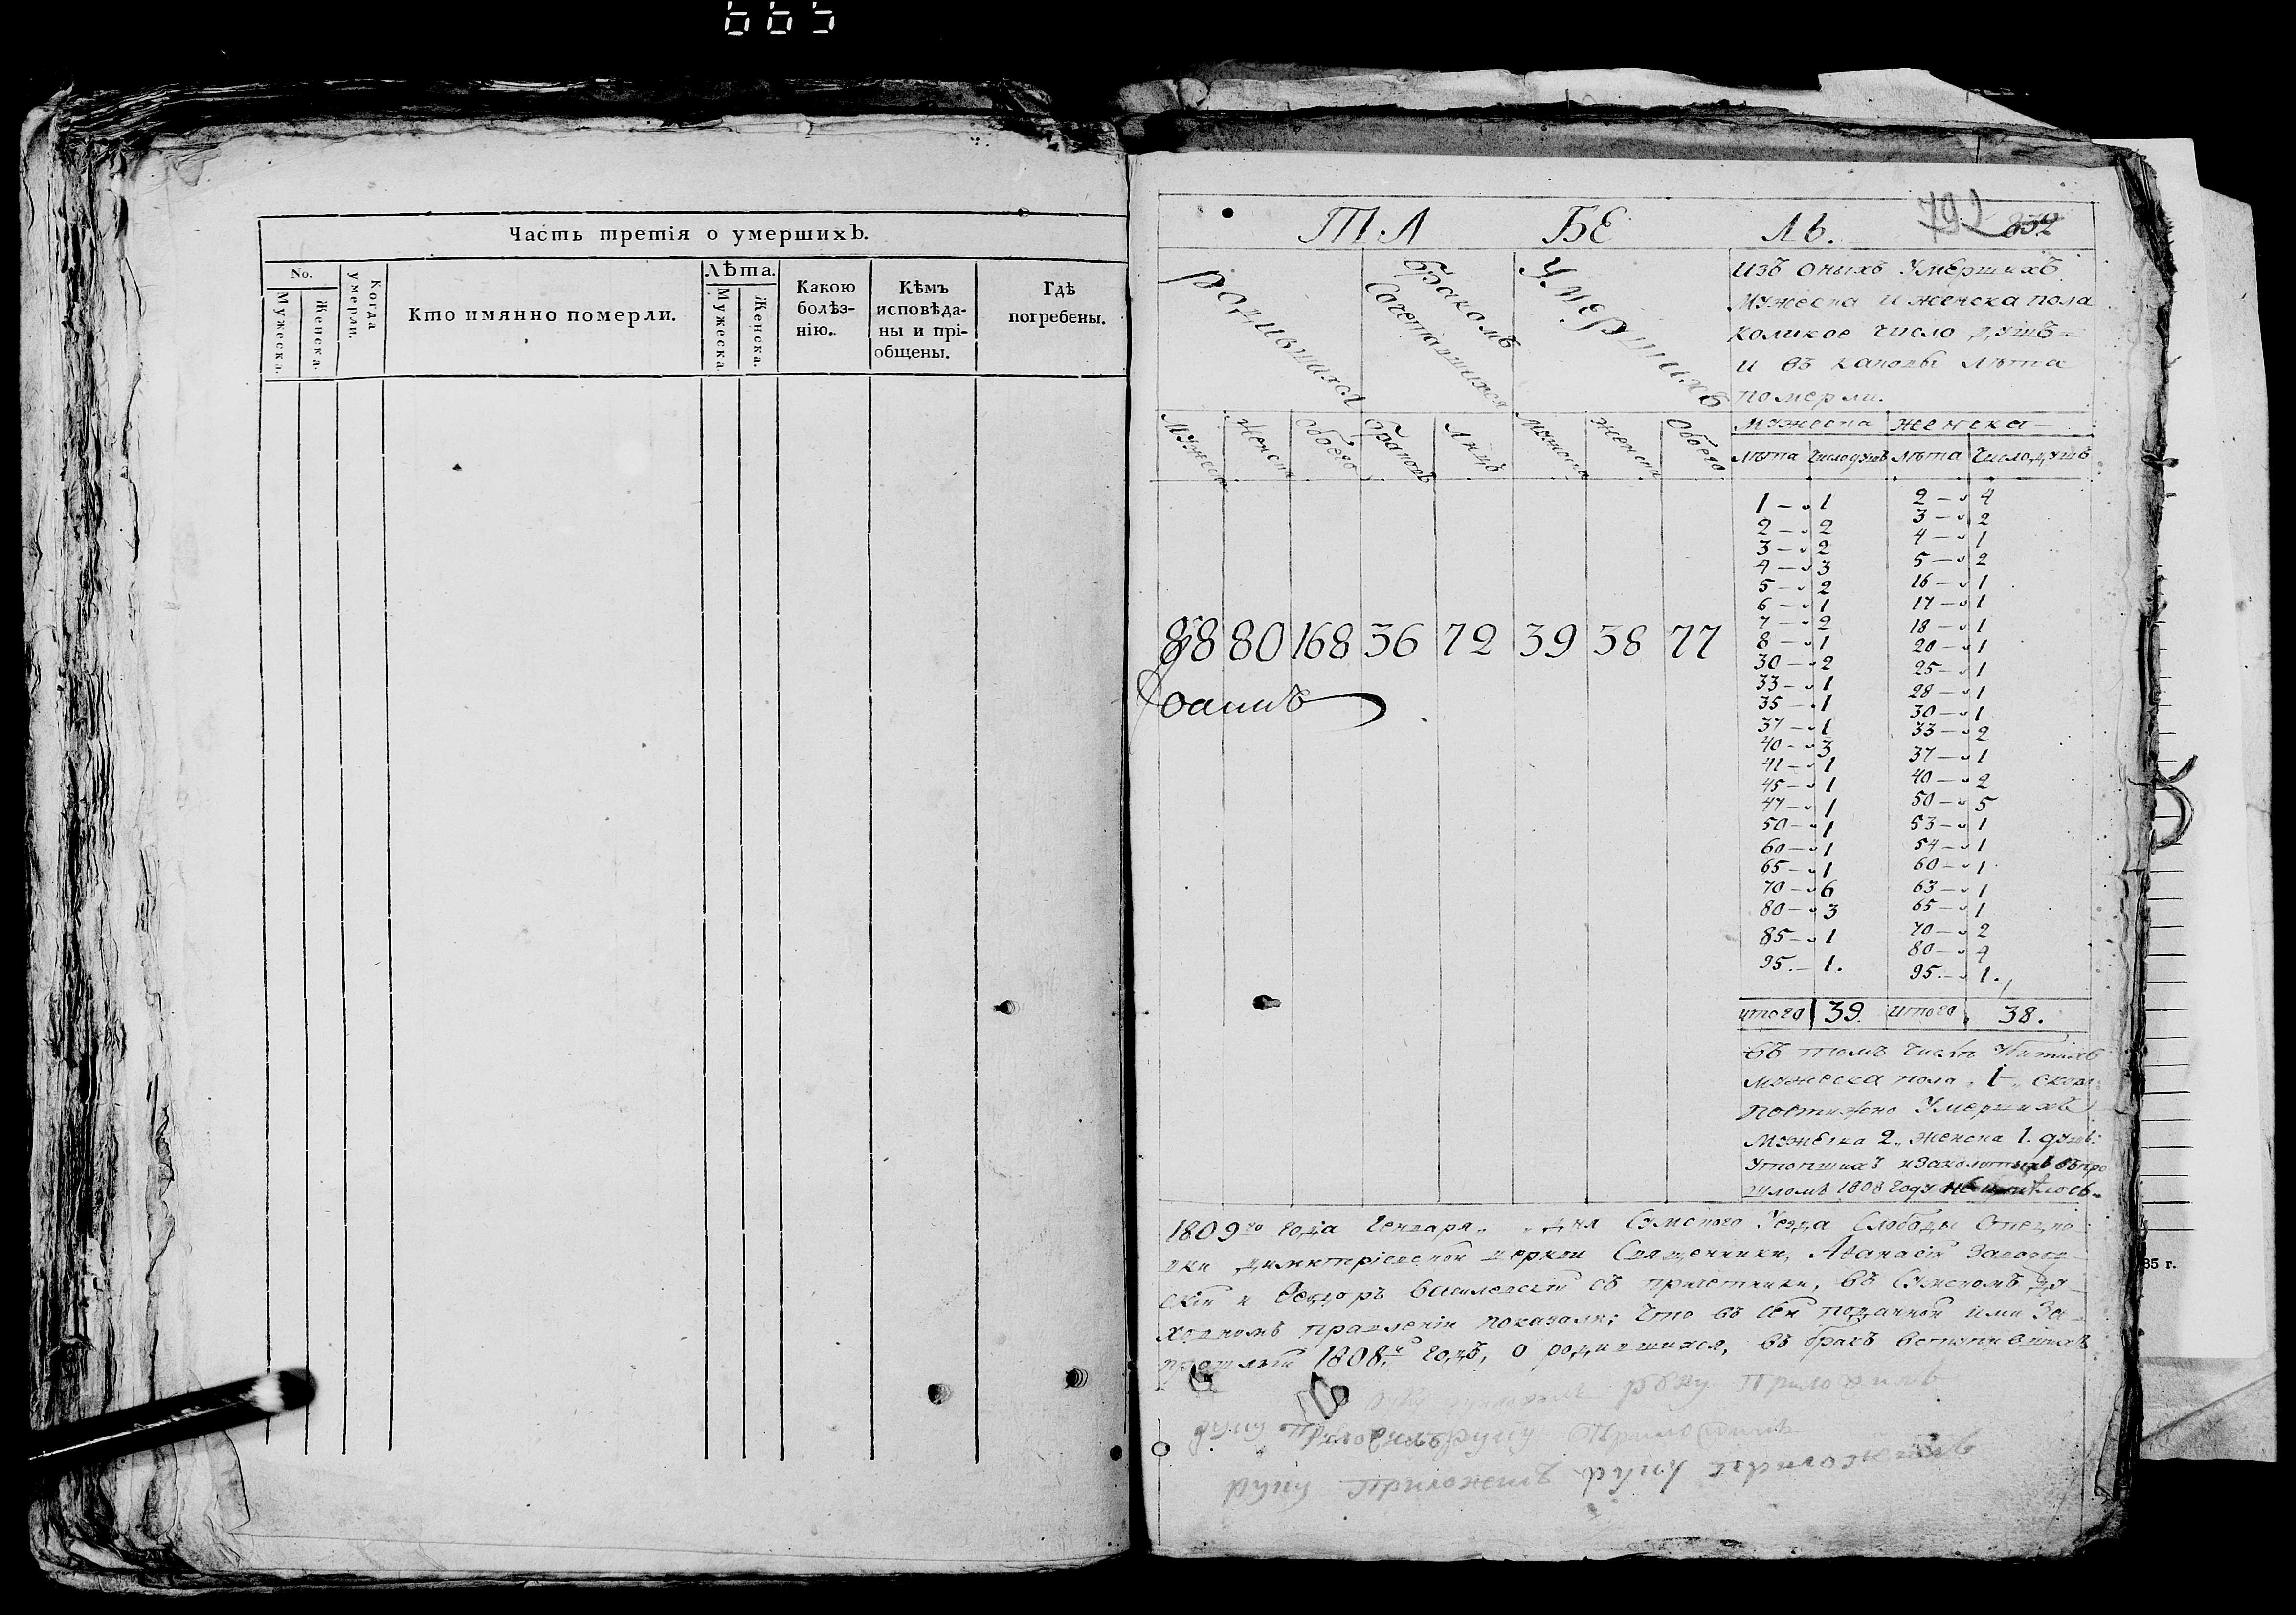 665
Часть третія о умершихъ.
No.
Мужеска.
Женска.
Когда умерли.
Кто имянно померли.
Лѣта.
Мужеска.
Женска.
Какою болѣз-
нію.
Кѣмъ
исповѣда-
ны и прі-
общены.
Гдѣ
погребены.
ТА БЕ ЛЬ.
792
632
Родившихся
бракомъ
Сочетавшихся
Умершихъ
изъ оныхъ Умершихъ
Мужеска и женска пола
коликое число душъ
и въ каковы лѣта
померли.
Мужеска женска
Мужеска женска обоего браковъ лицъ Мужеска женска обоего
Лѣта число душъ Лѣта число душъ
1 — 1
2 — 2
3 — 2
4 — 3
5 — 2
6 — 1
7 — 2
8 — 1
30 — 2
33 — 1
35 — 1
37 — 1
40 — 3
41 — 1
45 — 1
47 — 1
50 — 1
60 — 1
65 — 1
70 — 6
80 — 3
85 — 1
95. — 1.
2 — 4
3 — 2
4 — 1
5 — 2
16 — 1
17 — 1
18 — 1
20 — 1
25 — 1
28 — 1
30 — 1
33 — 2
37 — 1
40 — 2
50 — 5
53 — 1
54 — 1
60 — 1
63 — 1
65 — 1
70 — 2
80 — 4
95. — 1.
88 80 168 36 72 39 38 77
итого 39. итого 38.
въ томъ числѣ
мужеска пола 1
Умершихъ
Мужеска 2. женска 1. душъ.
Утопшихъ
шломъ 1808 году не имѣлось.
1809го года Генваря дня Сумскаго Уезда Слободы
Димитріевской церкви Священники, Афанасій
скій и Федоръ Василевскій съ причетники, въ Сумскомъ Ду-
ховномъ правленіи показали; что въ сей поданной ими За
прошлый 1808й годъ, о родившихся, въ бракъ вступившихъ
руку Приложилъ
руку Приложилъ руку Приложилъ
руку Приложилъ руку приложилъ
85 г.